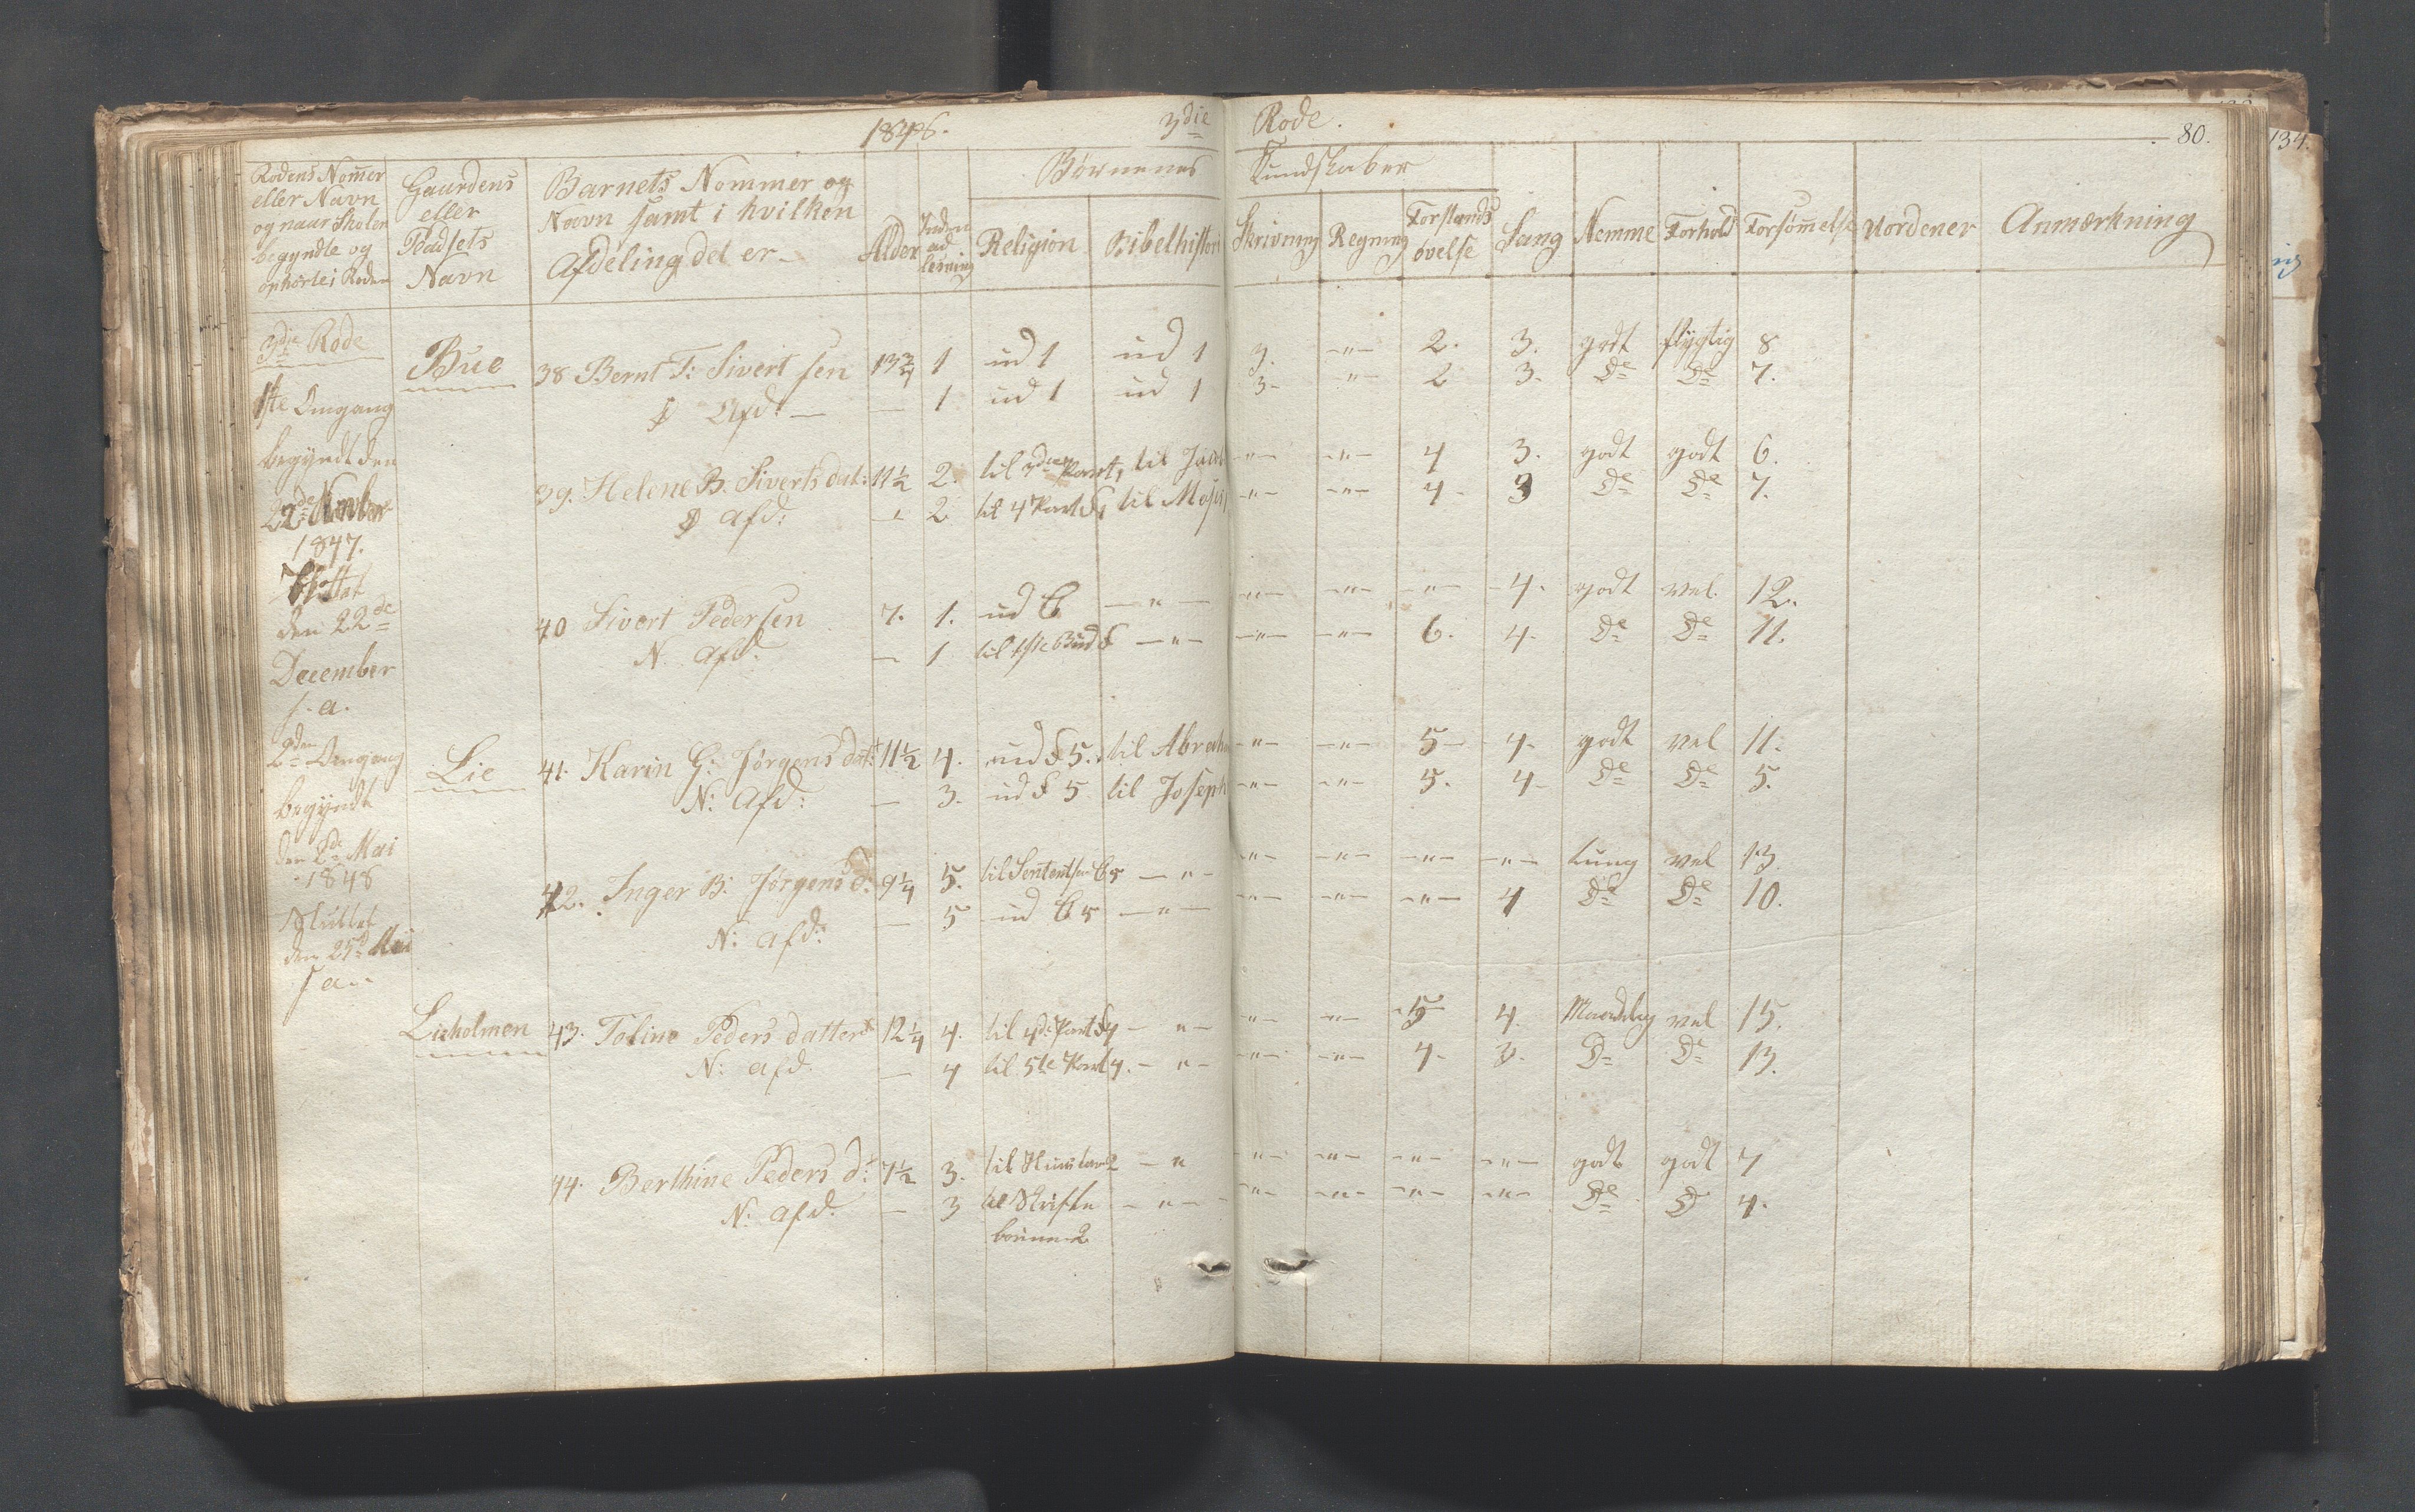 184 6. 3die Rode. 80.
Rodens Nomer eller Navn og naar Skolen begyndte og ophørte i Roden
Gaardens eller Pladsets Navn
Barnets Nommer og Navn samt i hvilken Afdeling det er
Alder
Inden ad læsning
Børnenes Kundskaber
Religion
Bibelhistori
Skrivning
Regning
Forstands øvelse
Sang
Nemme
Forhold
Forsømelse
Uordener
Anmærkning
3die Rode
1ste Omgang
begyndt den
22de November
1847.
Sluttet
den 22de
December
s. a.
2den Omgang
begyndt
den 2de Mai
1848
Sluttet
den 25de Mai
s a.
Bue 38 Bernt T: Sivertsen 13 3/4 1 ud 1 ud 1 3. -"- 2. 3. godt flygtig 8
Ø Afd: — — 1 ud 1 ud 1 3- -"- 2 3. De De 7.
39. Helene B. Siverts dat: 11 1/2 2. til 3die Part, til Jacob -"- -"- 4 3. godt godt 6.
Ø Afd: — 2 til 4 Part til Moses -"- -"- 4- 3 De De 7.
40 Sivert Pedersen 7. 1. ud —"— -"- -"- -"- 4. godt vel. 12.
N. Afd: — 1 til 1ste Bud -"- -"- -"- 6. 4. De De 11.
Lie 41. Karin G: Jørgens dat: 11 1/2 4. ud 5. til Abraha -"- -"- 5- 4. godt vel 11.
N: Afd: — 3. ud 5 til Joseph -"- -"- 5. 4- De De 5.
42. Inger B: Jørgens d: 9 1/4 5. til 5 -"- -"- -"- -"- -"- tung vel 13.
N: Afd: — 5 ud 5 -"- -"- -"- -"- 4 De De 10.
Lieholmen 43. Toline Peders datter 12 1/4 4. til 4de Part 4 -"- -"- -"- 5 4. vel 15.
N: Afd. — 4 til 5te Part 4. -"- -"- -"- 4- 3. D De 13.
44. Berthine Peders d: 7 1/2 3. til Huustav 2 -" -"- -"- -"- -"- godt godt 7
N: Afd. — 3 til Skrifte -"- -"- -"- -"- -"- De D 4.
2
134.